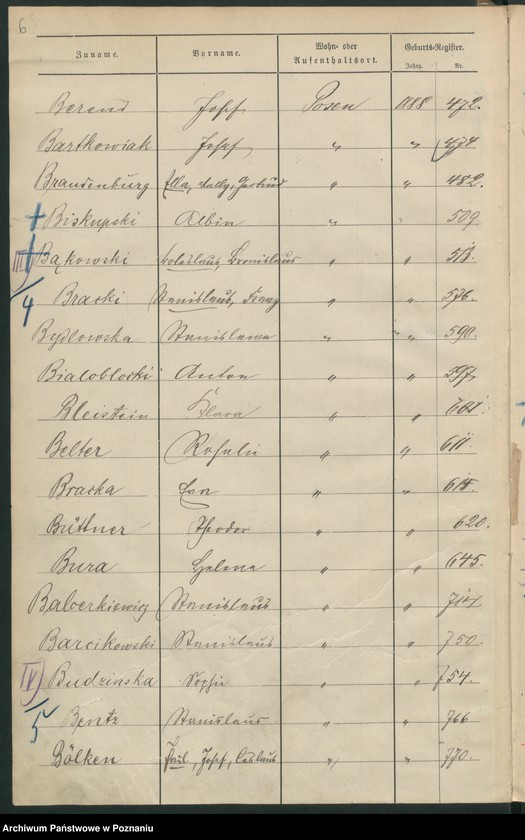 6
Zuname. Vorname. Wohn- oder Aufenthaltsort. Geburts-Register.
Jahrg. Nr.
Berend Josef Posen 1888 472.
Bartkowiak Josef " " 474
Brandenburg Ella, Gertrud " " 482.
Biskupski Albin " " 509.
III Bąkowski Boleslaus, Bronislaus " "
4 Bracki Stanislaus, Franz " " 576.
Bydlowska Stanislawa " " 590.
Bialoblocki Anton " " 597.
Bleistein Klara " "
Belter Rosalie " " 611.
Bracka Eva " "
Büttner Theodor " " 620.
Bura Helene " " 645.
Baberkiewicz Stanislaus " " 714.
Barcikowski Stanislaus " " 750.
IV Budzinska Sophie " " 754.
5 Bentz Stanislaus " " 766
Bölken Paul, Josef, Ceslaus " " 770.
Archiwum Państwowe w Poznaniu